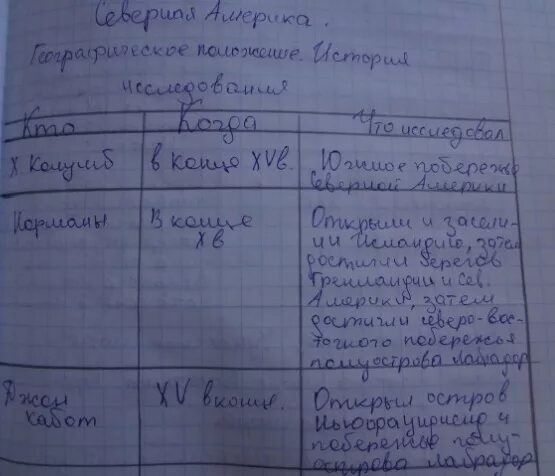 Северная Америка.
Географическое положение. История
исследования
Кто Когда Что исследовал
Х Колумб в конце XVв. Южное побережье
Северной Америки
Норманы В конце Открыли и засели-
XВ ли Исландию, затем
достигли берегов
Гренландии и Сев.
Америки, затем
достигли северо-вос-
точного побережья
полуострова Лабрадор
Джон XV в конце. Открыл остров
Кабот Ньюфаундленд и
побережье полу-
острова Лабрадор